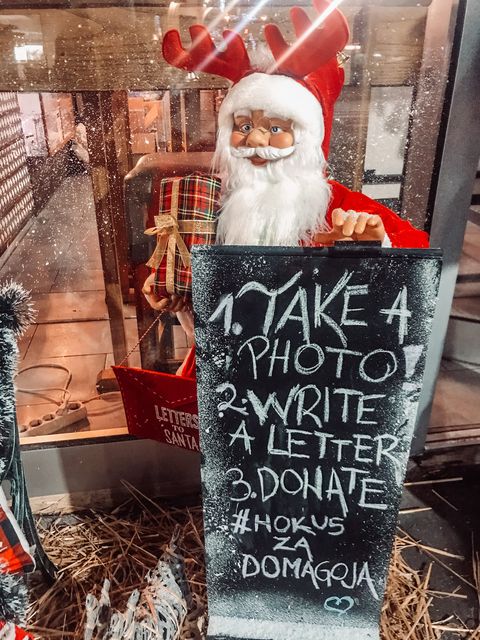 1. TAKE A
PHOTO
2. WRITE
A LETTER
3. DONATE
#HOKUS
ZA
DOMAGOJA
LETTERS
TO
SANTA